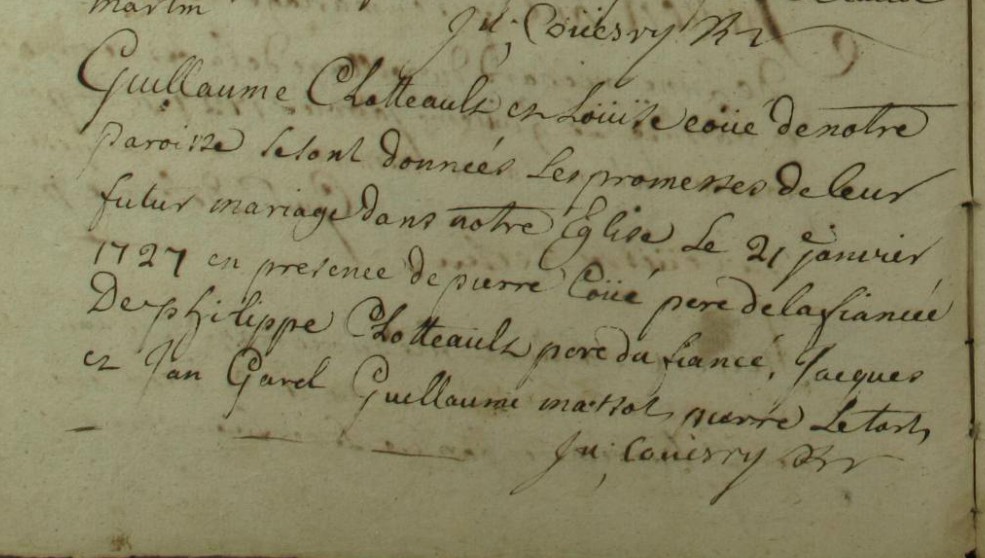 martin
Ju, Coüesry Rr
Guillaume Chotteault et Loüise coüé de notre
paroisse se sont donnés Les promesses de leur
futur mariage dans notre Eglise Le 21e janvier
1727 en presence de pierre Coüé pere de la fiancée
De philippe Chotteault pere du fiancé, Jacques
et Jan Garel Guillaume massot pierre Letort
Ju, Couesry Rr